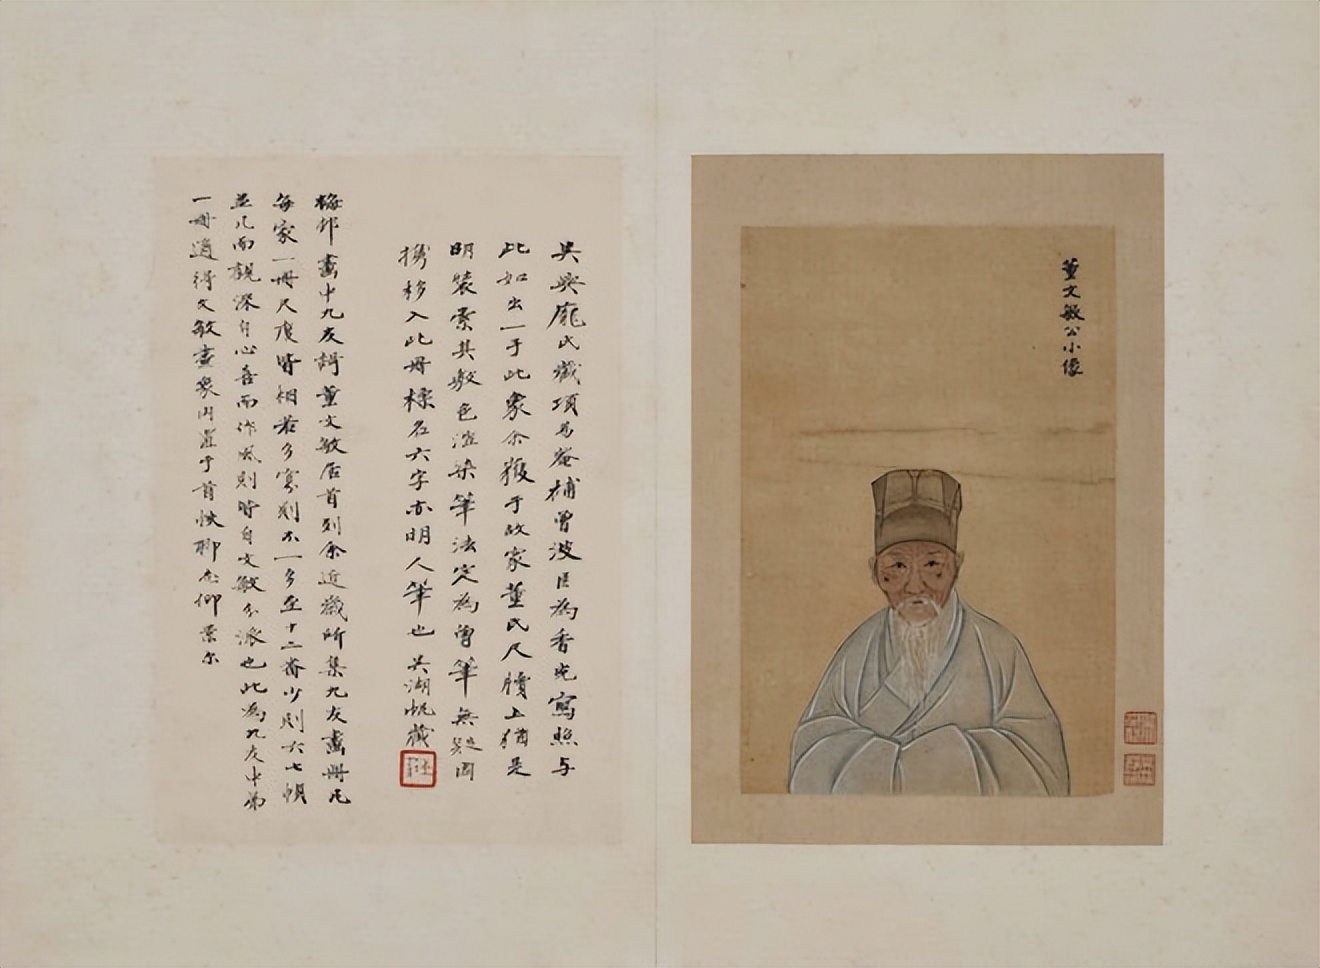 董文敏公小像
吳興龐氏藏項易菴補曾波臣為香光寫照与
此如出一手此象余獲于故家董氏尺牘上猶是
明裝其敷色渲染筆法定為曾筆無疑因
攜移入此冊標名六字亦明人筆也 吳湖帆藏
梅邨畫中九友謌董文敏居首列余近歲所集九友畫冊凡
每家一冊尺度皆相若多寡則不一多至十二番少則六七幀
並几而觀深自心喜而作風則皆自文敏分派也此為九友中弟
一冊適得文敏畫象因置于首帙聊志仰景尔